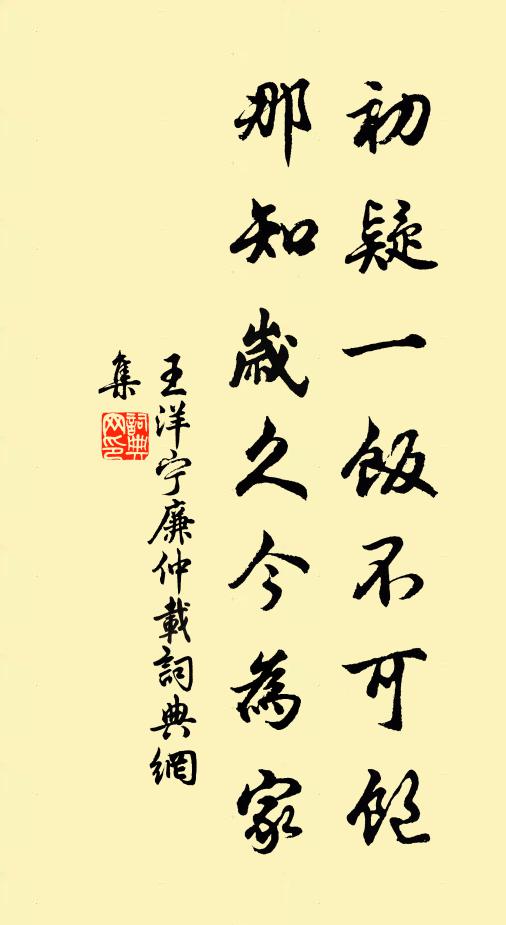 初疑一飯不可飽
那知歲久今為家
王洋宁廉仲載詞典網
集
詞典
网印